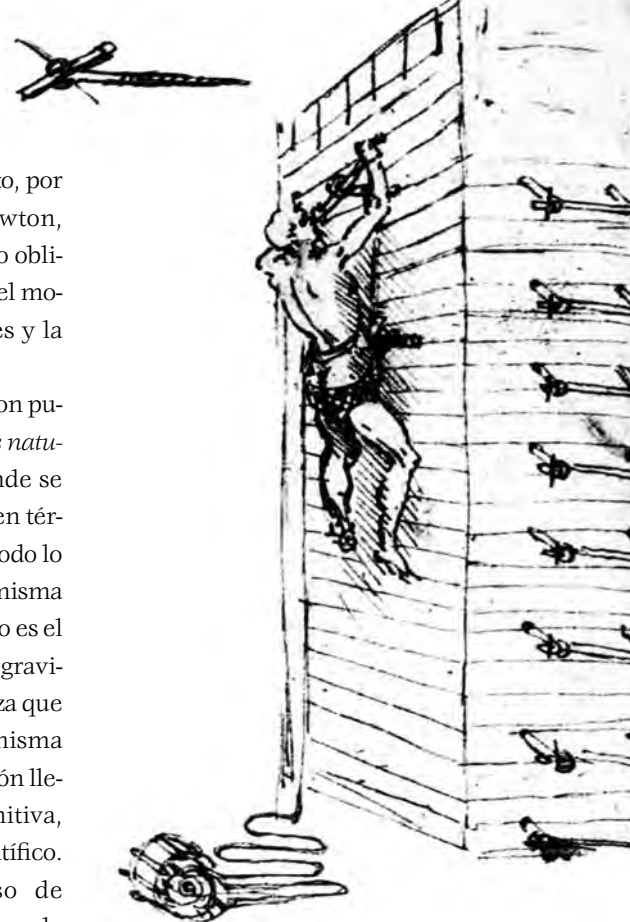 to, por
wton,
o obli-
el mo-
es y la
on pu-
e natu-
nde se
en tér-
odo lo
misma
o es el
gravi-
za que
misma
ón lle-
nitiva,
tífico.
so de